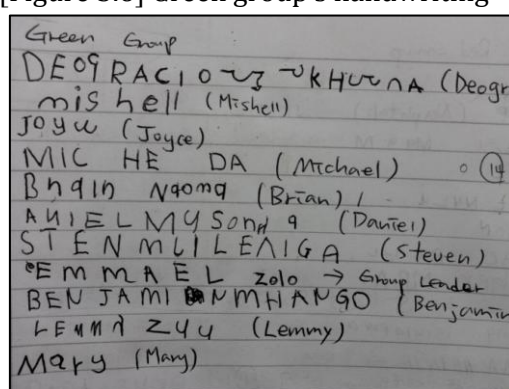 [Figure 3.6] Green group's handwriting
Green Group
DEO9RACIO (Deogr
mishell (Mishell)
JOyce (Joyce)
MIC HE DA (Michael) 0 14
Bhain Ngoma (Brian) 1
AnIELMYSOnd 9 (Daniel)
STENMLILENIGA (Steven)
EMMAEL Zolo → Group Leader
BENJAMI NMHANGO (Benjamin
LEMMY ZYY (Lemmy)
Mary (Mary)